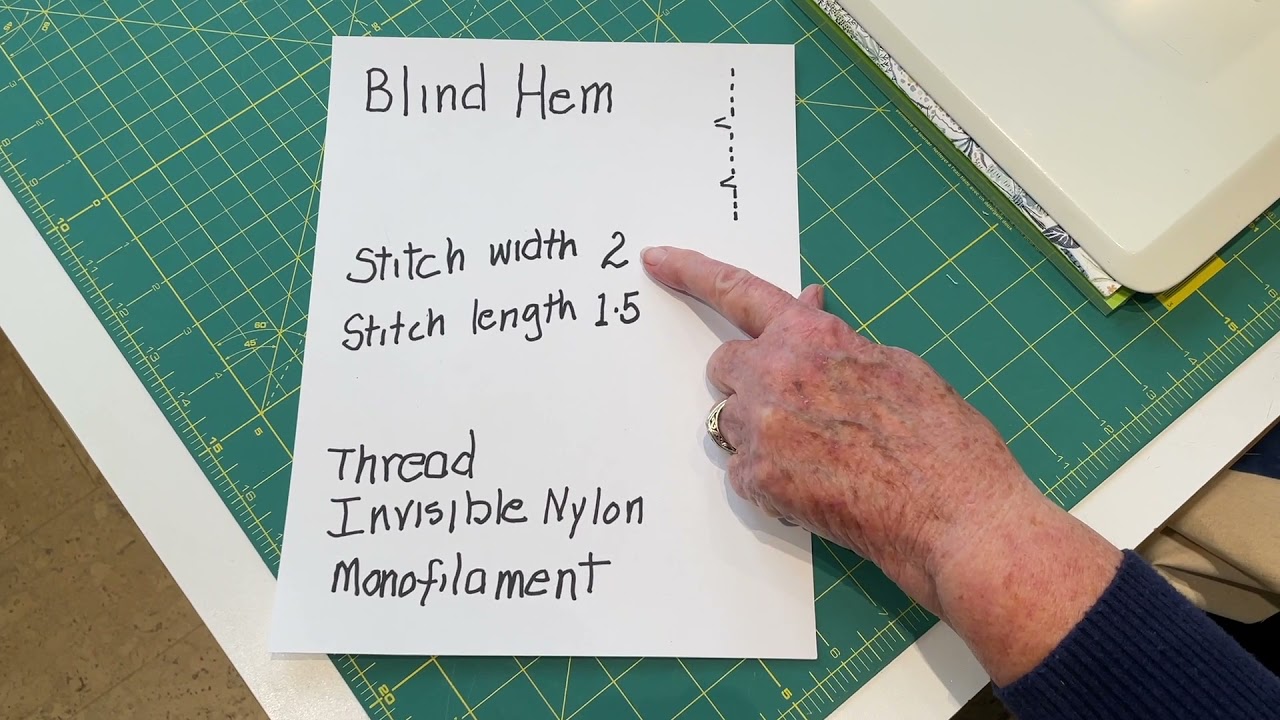 Blind Hem
Stitch width 2
Stitch length 1.5
Thread
Invisible Nylon
Monofilament